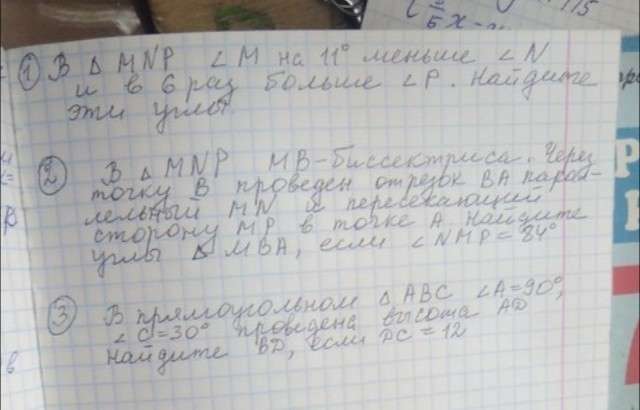 ① В △ MNP ∠M на 11° меньше ∠N
и в 6 раз больше ∠P. Найдите
эти углы
② В △ MNP MB-биссектриса. Через
точку B проведен отрезок BA парал-
лельный MN и пересекающий
сторону MP в точке A. Найдите
углы △ MBA, если ∠NMP = 84°
③ В прямоугольном △ ABC ∠A=90°,
∠C=30° проведена высота AD
Найдите BD, если DC = 12